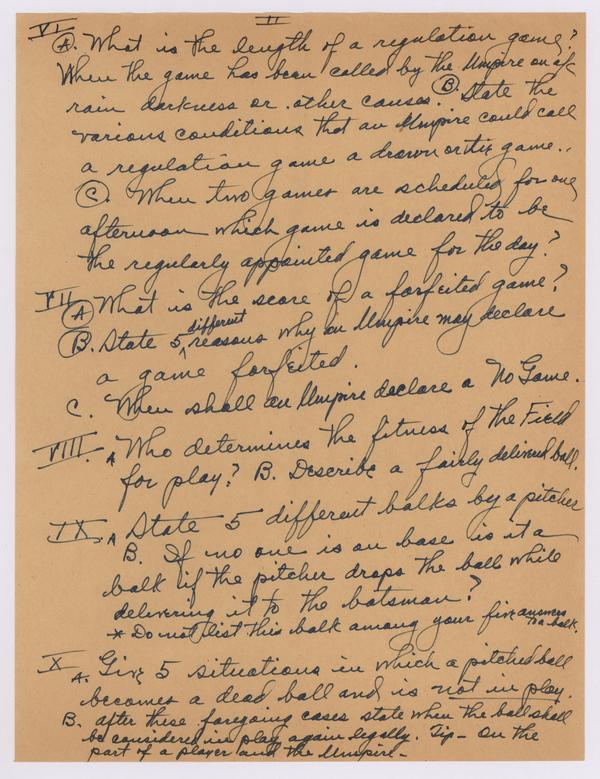 II
VI
A. What is the length of a regulation game?
When the game has been called by the Umpire on a/c
rain darkness or other causes. B. State the
various conditions that an Umpire could call
a regulation game a drawn or tie game..
C. When two games are scheduled for one
afternoon which game is declared to be
the regularly appointed game for the day?
VII
A What is the score of a forfeited game?
B. State 5 different reasons why an Umpire may declare
a game forfeited.
C. When shall an Umpire declare a No Game.
VIII. A Who determines the fitness of the Field
for play? B. Describe a fairly delivered ball.
IX. A State 5 different balks by a pitcher
B. If no one is on base is it a
balk if the pitcher drops the ball while
delivering it to the batsman?
* Do not list this balk among your five answers to a balk.
X A. Give 5 situations in which a pitched ball
becomes a dead ball and is not in play.
B. after these foregoing cases state when the ball shall
be considered in play again legally. Tip - On the
part of a player and the Umpire -